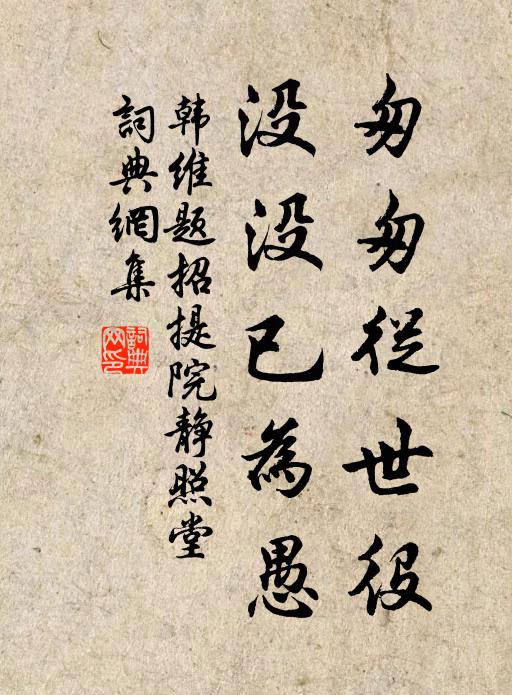 匆匆從世役
没没已為愚
韩維题招提院静照堂
詞典網集
詞典
网印